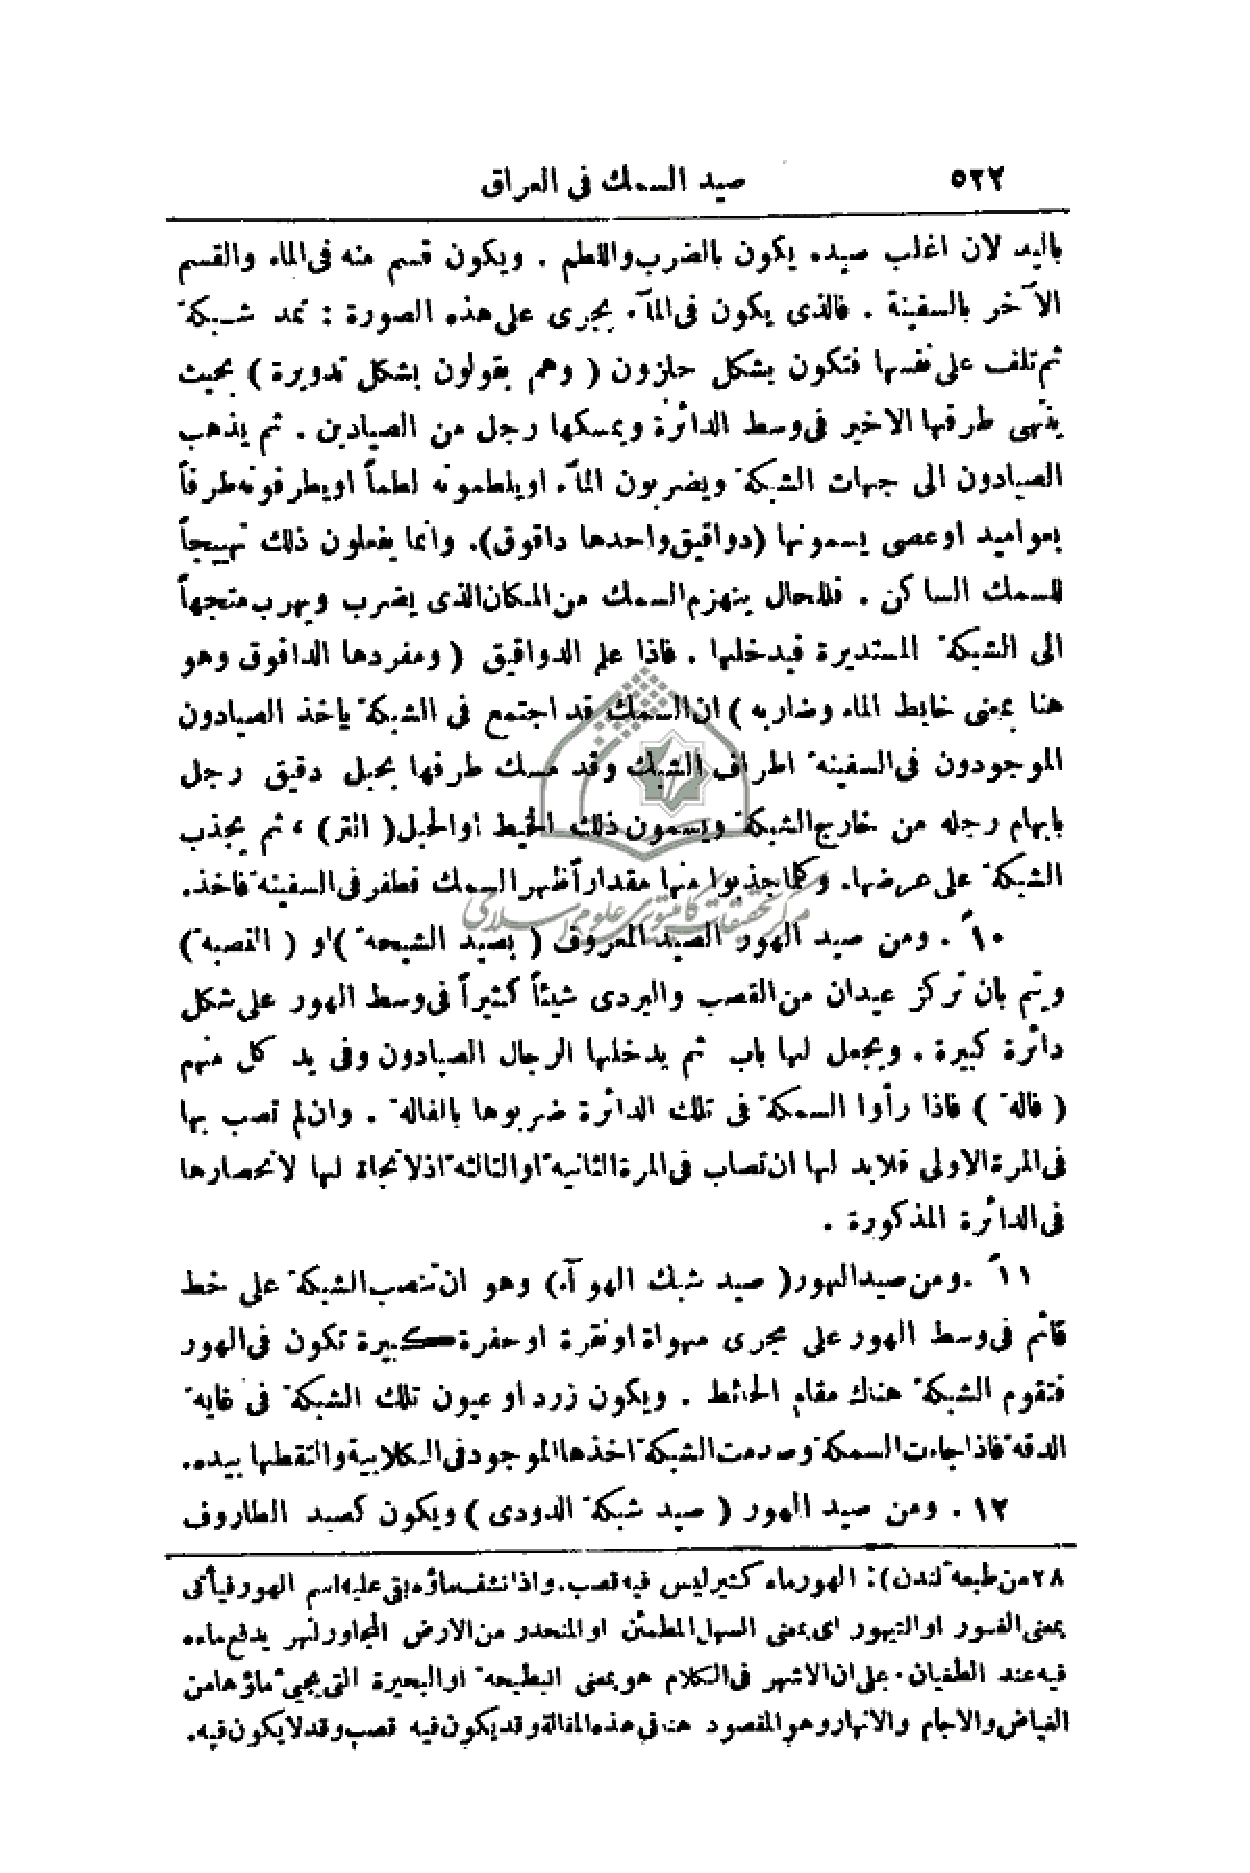 ٥٢٢ صيد السمك في العراق
باليد لان اغلب صيده يكون بالضرب واللطم . ويكون قسم منه فى الماء والقسم
الآخر بالسفينة . فالذى يكون فى المآء يجرى على هذه الصورة : تمد شبكة
ثم تلف على نفسها فتكون بشكل حلزون ( وهم يقولون بشكل تدويرة ) بحيث
ينتهى طرفها الاخير فى وسط الدائرة ويمسكها رجل من الصيادين . ثم يذهب
الصيادون الى جهات الشبكة ويضربون المآء او يلطمونه لطماً او يطرفونه طرفاً
بعواميد او عصى يسمونها (دواقيق واحدها داقوق). وانما يفعلون ذلك تهييجاً
للسمك الساكن . فللحال ينهزم السمك من المكان الذى يضرب ويهرب متجهاً
الى الشبكة المستديرة فيدخلها . فاذا علم الدواقيق ( ومفردها الداقوق وهو
هنا بمعنى خابط الماء وضاربه ) ان السمك قد اجتمع فى الشبكة ياخذ الصيادون
الموجودون فى السفينة اطراف الشبك وقد مسك طرفها بحبل دقيق رجل
بابهام رجله من خارج الشبكة ويسمون ذلك الخيط او الحبل ( النتر ) ، ثم يجذب
الشبكة على عرضها. وكما جذبوا منها مقداراً ظهر السمك فطفر فى السفينة فاخذ.
١٠ً . ومن صيد الهور الصيد المعروف ( بصيد الشيحة ) او ( القصبة )
ويتم بان تركز عيدان من القصب والبردى شيئاً كثيراً فى وسط الهور على شكل
دائرة كبيرة . ويجعل لها باب ثم يدخلها الرجال الصيادون وفى يد كل منهم
( فالة ) فاذا رأوا السمكة فى تلك الدائرة ضربوها بالفالة . وان لم تصب بها
فى المرة الاولى فلابد لها ان تصاب فى المرة الثانية او الثالثة اذ لا نجاة لها لانحصارها
فى الدائرة المذكورة .
١١ً . ومن صيد الهور ( صيد شبك الهوآء ) وهو ان تنصب الشبكة على خط
قائم فى وسط الهور على مجرى مهواة او نقرة او حفرة كبيرة تكون فى الهور
فتقوم الشبكة هناك مقام الحائط . ويكون زرد او عيون تلك الشبكة فى غاية
الدقة فاذا جاءت السمكة وصدمت الشبكة اخذها الموجود فى الكلابية والتقطها بيده.
١٢ . ومن صيد الهور ( صيد شبكة الدودى ) ويكون كصيد الطاروف
٢٨ من طبعة لندن): الهور ماء كثير ليس فيه قصب. واذا نشف ماؤه بقى عليه اسم الهور فيأتى
بمعنى الغور او التيهور اى بمعنى السهل المطمئن او المنحدر من الارض المجاور لنهر يدفع ماءه
فيه عند الطفيان . على ان الاشهر فى الكلام هو بمعنى البطيحة او البحيرة التى يجيئ ماؤها من
الغياض والاجام والانهار وهو المقصود هنا فى هذه المقالة وقد يكون فيه قصب وقد لا يكون فيه.
مركز تحقيقات كامپيوترى علوم اسلامى